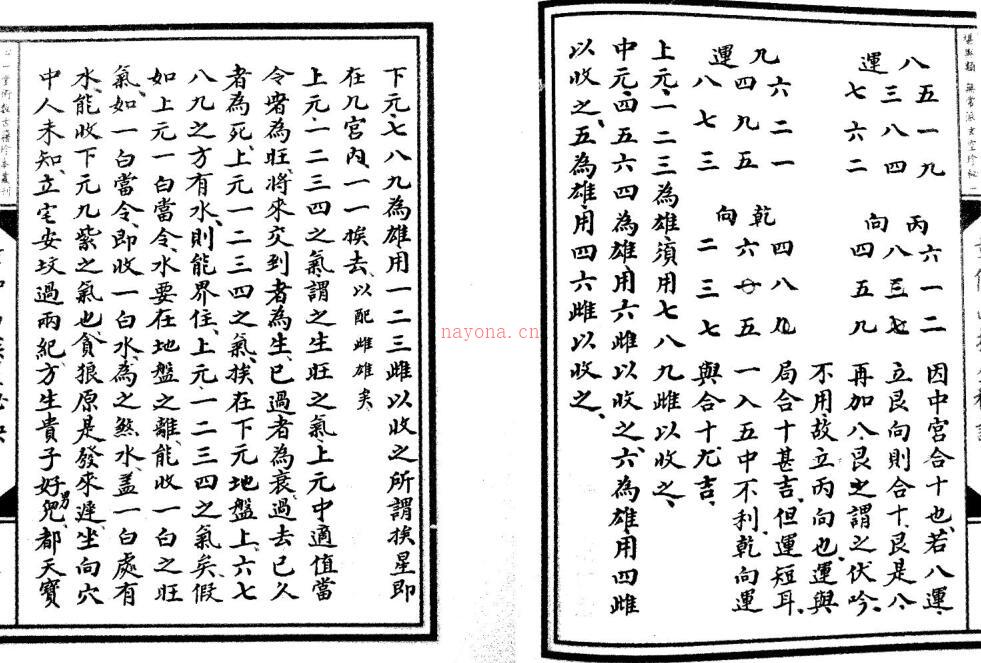 堪輿類 無常派玄空珍秘
八運
五一九
三八四
七六二
丙向
六一二
八三七
四五九
因中宮合十也、若八運、
立艮向則合十、艮是八、
再加八艮謂之伏吟、
不用、故立丙向也、運與
九運
六二一
四九五
八七三
乾向
四八九
六 五
二三七
局合十甚吉、但運短耳、
一入五中不利、乾向運
與合十、尤吉、
上元、一二三為雄、須用七八九雌以收之、
中元、四五六四為雄、用六雌以收之、六為雄、用四雌
以收之、五為雄、用四六雌以收之、
下元、七八九為雄用一二三雌以收之所謂挨星即
在九宮內、一一挨去、以配雌雄矣、
上元、一二三四之氣謂之生旺之氣上元中適值當
令者為旺、將來交到者為生、已過者為衰、過去已久
者為死、上元一二三四之氣、挨在下元地盤上、六七
八九之方有水、則能界住、上元、一二三四之氣矣、假
如上元一白當令、水要在地盤之離、能收一白之旺
氣、如一白當令、即收一白水、為之煞水、盖一白處有
水、能收下元九紫之氣也、貪狼原是發來遲、坐向穴
中人未知、立宅安坟過兩紀、方生貴子好男兒、都天寶
心一堂術數古籍珍本叢刊
nayona.cn